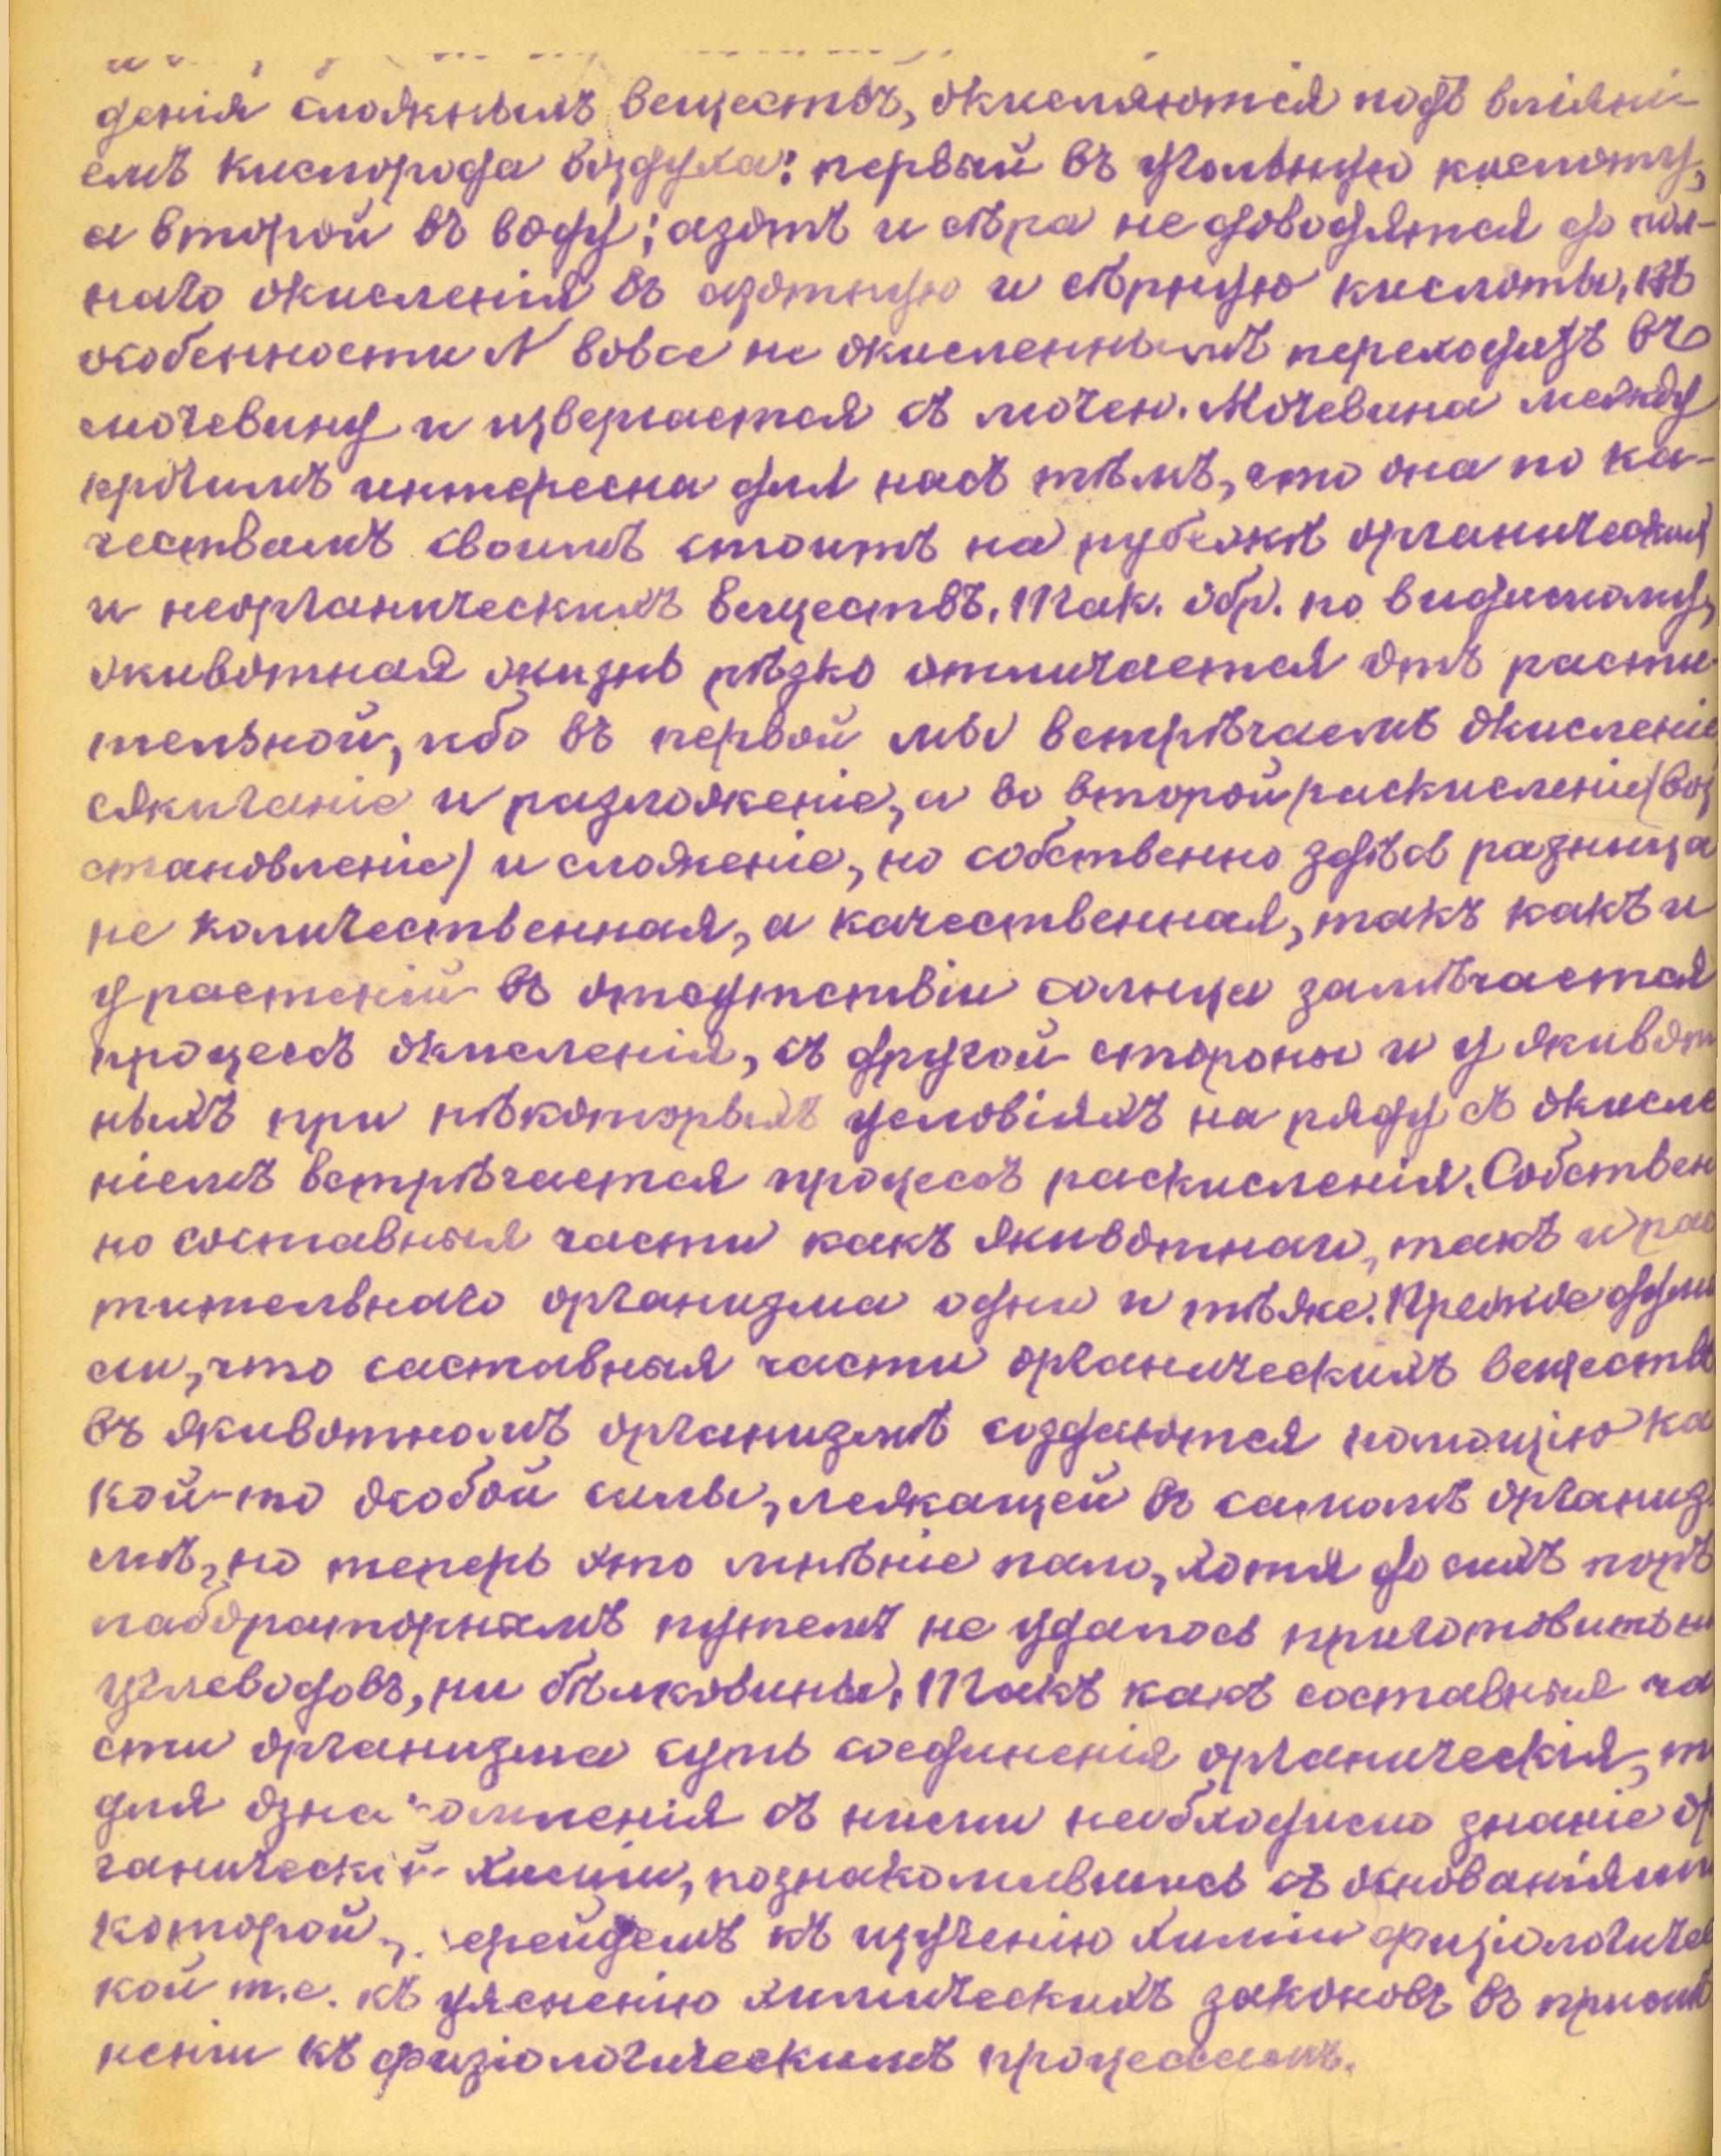 денія сложныхъ веществъ, окисляются подъ вліяні-
емъ кислорода воздуха: первый въ угольную кислоту,
а второй въ воду; азотъ и сѣра не доводятся до пол-
наго окисленія въ азотную и сѣрную кислоты, въ
особенности N вовсе не окисленнымъ переходитъ въ
мочевину и извергается съ мочею. Мочевина между
прочимъ интересна для насъ тѣмъ, что она по ка-
чествамъ своимъ стоитъ на рубежѣ органическихъ
и неорганическихъ веществъ. Так. обр. по видимому,
животная жизнь рѣзко отличается отъ расти-
тельной, ибо въ первой мы встрѣчаемъ окисленіе
сжиганіе и разложеніе, а во второй раскисленіе (воз
становленіе) и сложеніе, но собственно здѣсь разница
не количественная, а качественная, такъ какъ и
у растеній въ отсутствіи солнца замѣчается
процессъ окисленія, съ другой стороны и у живот
ныхъ при нѣкоторыхъ условіяхъ на ряду съ окисле
ніемъ встрѣчается процесъ раскисленія. Собствен
но составныя части какъ животнаго, такъ и рас
тительнаго организма одни и тѣже. Прежде дума
ли, что саставныя части органическихъ веществъ
въ животномъ организмѣ создаются помощію ка
кой-то особой силы, лежащей въ самомъ организ
мѣ, но теперь это мнѣніе пало, хотя до сихъ поръ
лабораторнымъ путемъ не удалось приготовить ни
углеводовъ, ни бѣлковины. Такъ какъ составныя ча
сти организма суть соединенія органическія, то
для ознакомленія съ ними необходимо знаніе ор
ганической химіи, познакомившись съ основаніями
которой, перейдемъ къ изученію химіи физіологичес
кой т.е. къ уясненію химическихъ законовъ въ примѣ
неніи къ физіологическимъ процессамъ.